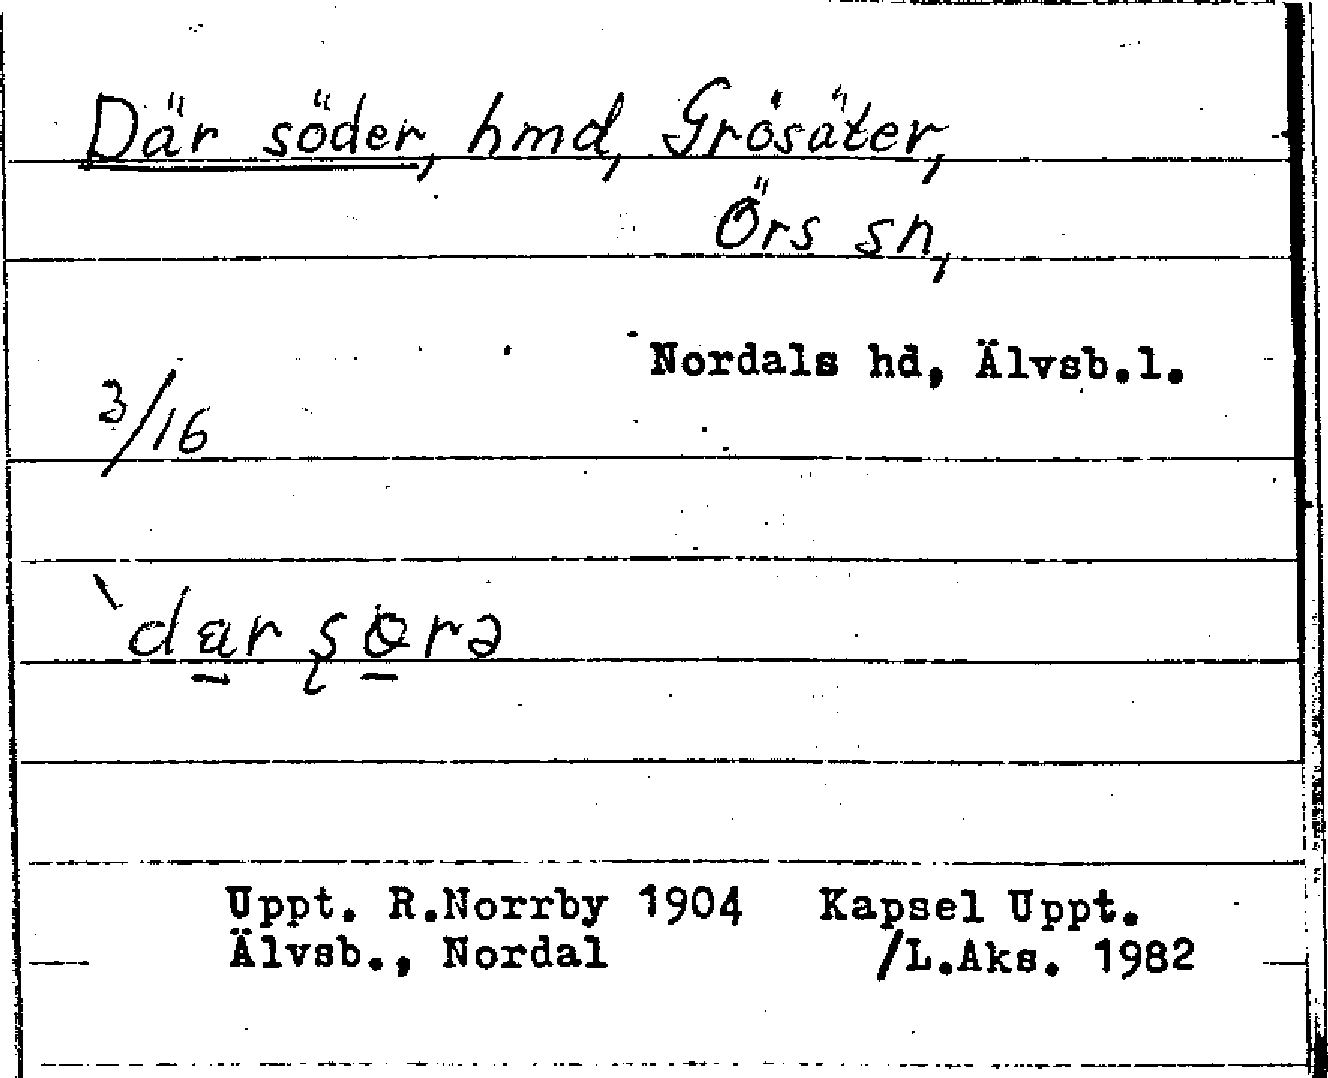 Där söder, hmd, Grösäter,
Örs sn,
Nordals hd, Älvsb.l.
3/16
Uppt. R.Norrby 1904 Kapsel Uppt.
Älvsb., Nordal /L.Aks. 1982